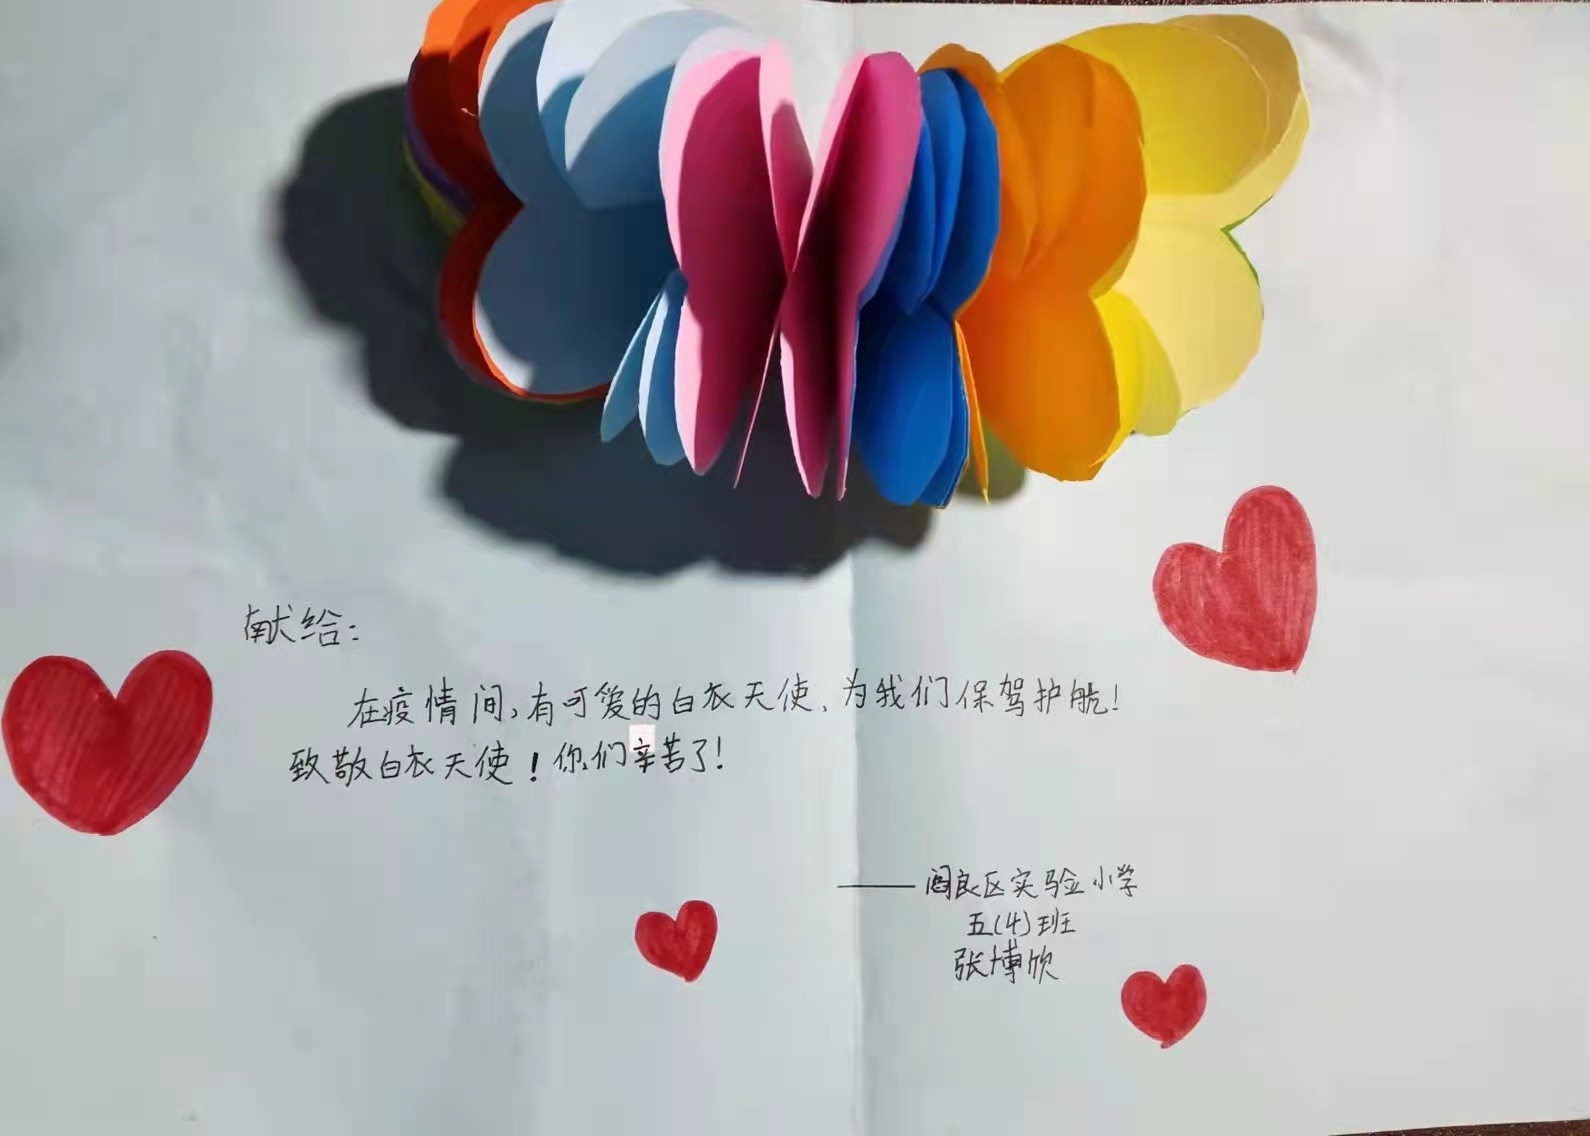 献给：
在疫情间，有可爱的白衣天使、为我们保驾护航！
致敬白衣天使！你们辛苦了！
——阎良区实验小学
五(4)班
张博欣